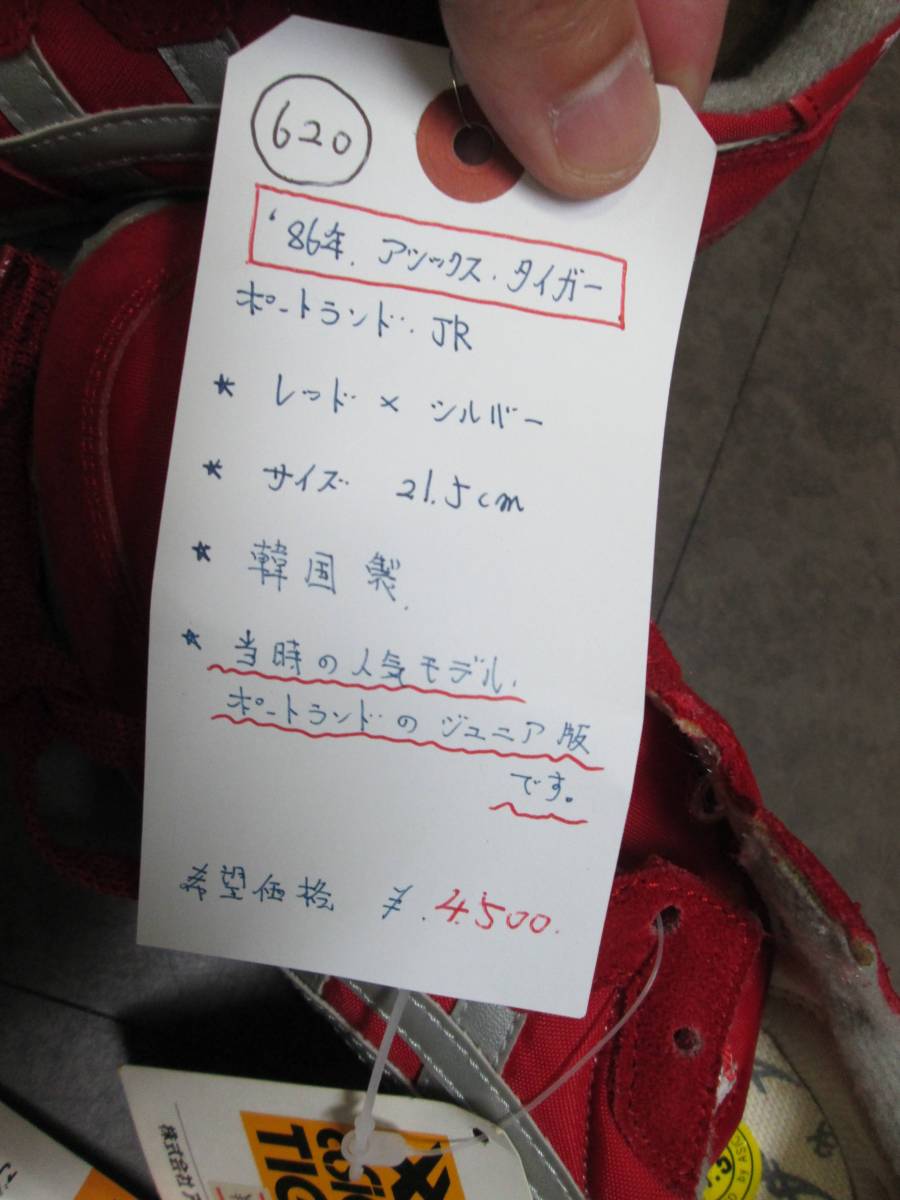 620
'86年.アシックス.タイガー
ポートランド.JR
* レッド × シルバー
* サイズ 21.5cm
* 韓国製.
* 当時の人気モデル.
ポートランドのジュニア版
です。
希望価格 ¥.4,500.
株式会社
asic
TIG
.5
by ASI